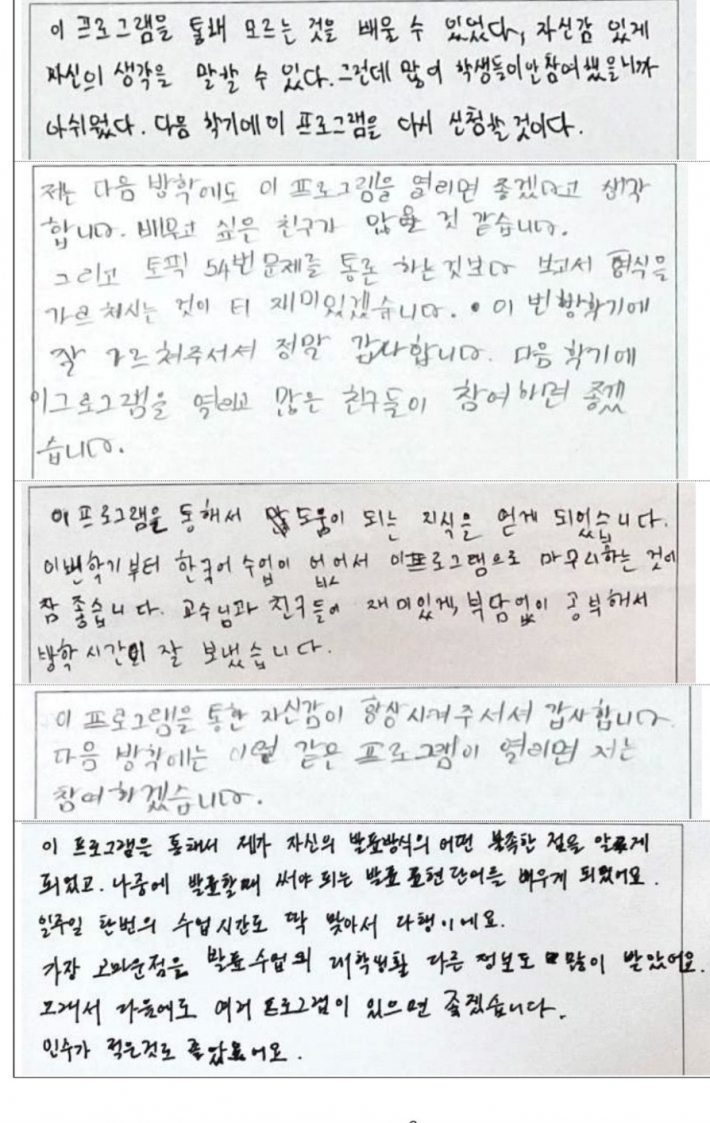 이 프로그램을 통해 모르는 것을 배울 수 있었다, 자신감 있게
자신의 생각을 말할 수 있다. 그런데 많이 학생들이 안 참여했을니까
아쉬웠다. 다음 학기에 이 프로그램을 다시 신청할 것이다.
저는 다음 방학에도 이 프로그림을 열리면 좋겠다고 생각
합니다. 배우고 싶은 친구가 많을 것 같습니다.
그리고 토픽 54번 문제를 통론 하는것보다 보고서 형식을
가르쳐시는 것이 더 재미있겠습니다. 이번 방학기에
잘 가르쳐주셔서 정말 감사합니다. 다음 학기에
이그로그램을 열리고 많은 친구들이 참여하면 좋겠
습니다.
이 프로그램을 통해서 많 도움이 되는 지식을 얻게 되었습니다.
이번학기부터 한국어 수업이 없어서 이프로그램으로 마무리하는 것이
참 좋습니다. 교수님과 친구들이 재미있게, 부담없이 공부해서
방학 시간이 잘 보냈습니다.
이 프로그램을 통한 자신감이 향상시켜주셔서 감사합니다.
다음 방학에는 이런 같은 프로그램이 열리면 저는
참여하겠습니다.
이 프로그램은 통해서 제가 자신의 발표방식의 어떤 부족한 점을 알게
되었고. 나중에 발표할때 써야 되는 발표 표현 단어를 배우게 되었어요.
일주일 한번의 수업시간도 딱 맞아서 다행이에요.
가장 고마운점은 발표수업의 대학생활 다른 정보도 많이 받았어요.
그래서 다음에도 여거 프로그럼이 있으면 좋겠습니다.
인수가 적은것도 좋았어요.